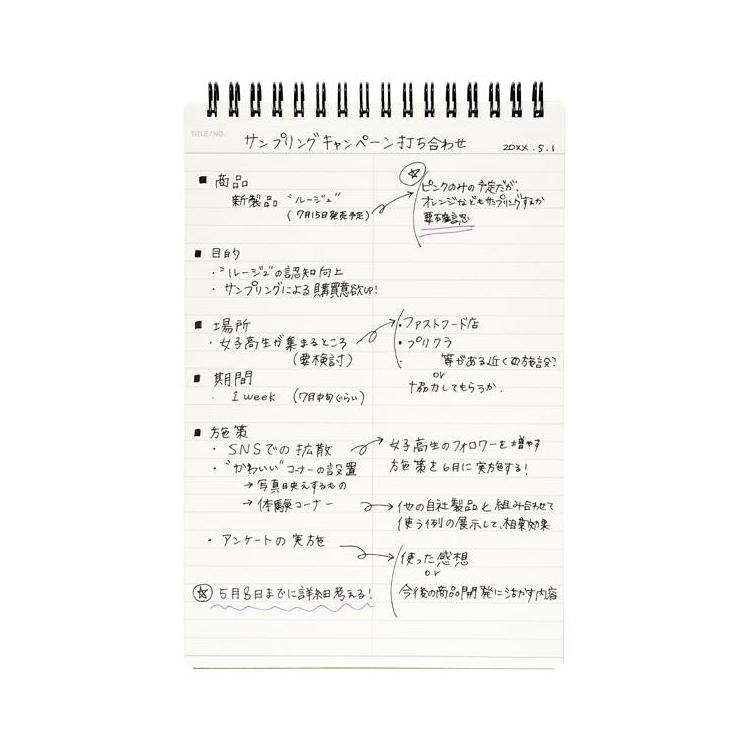 TITLE/NO.
サンプリングキャンペーン打ち合わせ 20XX.5.1
■ 商品
新製品 "ルージュ"
(7月15日発売予定)
☆
ピンクのみの予定だが、
オレンジなどもサンプリングするか
要確認
■ 目的
・"ルージュ"の認知向上
・サンプリングによる購買意欲UP!
■ 場所
・女子高生が集まるところ
(要検討)
・ファストフード店
・プリクラ
等がある近くの施設?
or
協力してもらうか.
■ 期間
・1week (7月中旬ぐらい)
■ 施策
・SNSでの拡散
女子高生のフォロワーを増やす
施策を6月に実施する!
・"かわいい"コーナーの設置
→写真映えするもの
→体験コーナー
他の自社製品と組み合わせて
使う例の展示して、相乗効果
・アンケートの実施
使った感想
or
今後の商品開発に活かす内容
☆ 5月8日までに詳細考える!